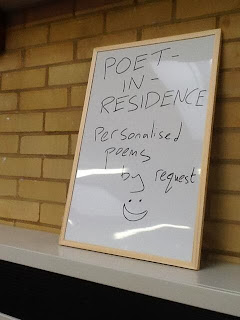 POET-
IN-
RESIDENCE
Personalised
poems
by request